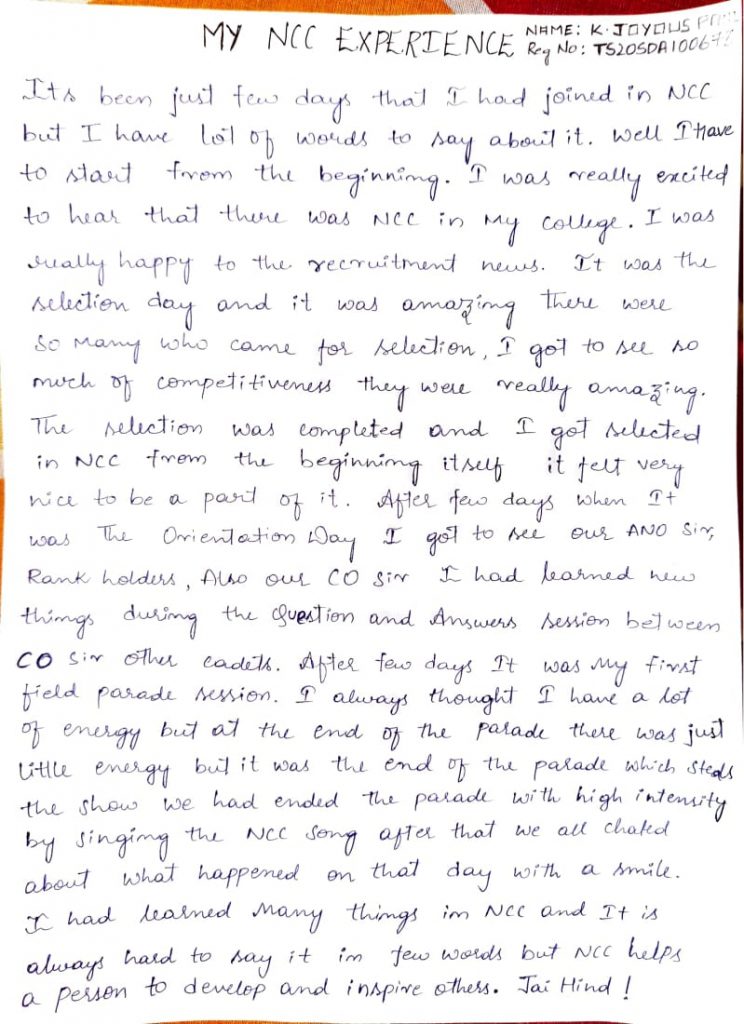 MY NCC EXPERIENCE NAME: K. JOYOUS
Reg No: TS20SDA100672
Its been just few days that I had joined in NCC
but I have lot of words to say about it. Well I Have
to start from the beginning. I was really excited
to hear that there was NCC in My college. I was
really happy to the recruitment news. It was the
selection day and it was amazing there were
So Many who came for selection, I got to see so
much of competitiveness they were really amazing.
The selection was completed and I got selected
in NCC from the beginning itself it felt very
nice to be a part of it. After few days when It
was The Orientation Day I got to see our ANO Sir,
Rank holders, Also our CO Sir I had learned new
things during the Question and Answers session between
CO Sir other cadets. After few days It was My first
field parade session. I always thought I have a lot
of energy but at the end of the parade there was just
little energy but it was the end of the parade which steals
the show we had ended the parade with high intensity
by singing the NCC Song after that we all chated
about what happened on that day with a smile.
I had learned Many things in NCC and It is
always hard to say it in few words but NCC helps
a person to develop and inspire others. Jai Hind!